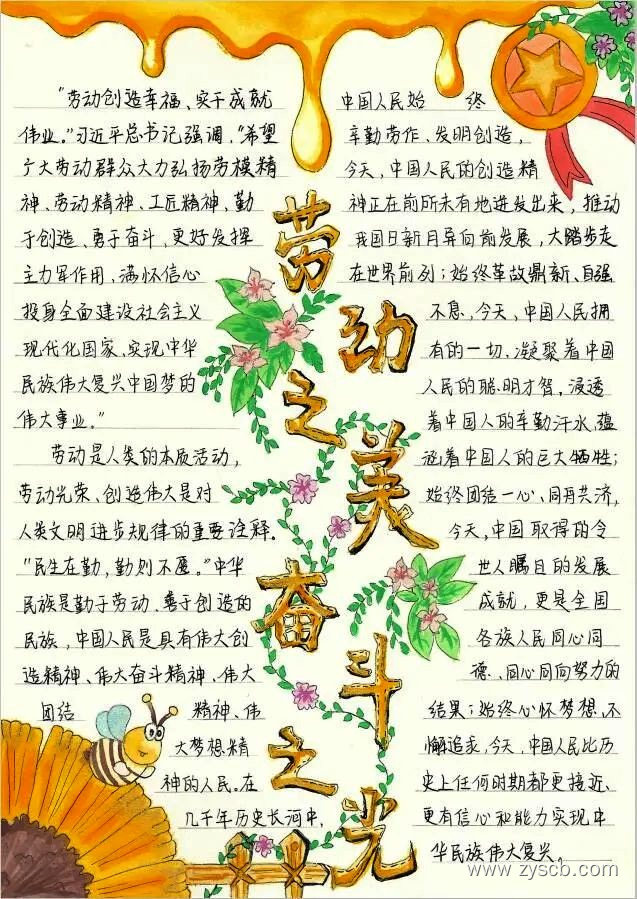 劳动之美
奋斗之光
"劳动创造幸福、实干成就
伟业。"习近平总书记强调，"希望
广大劳动群众大力弘扬劳模精
神、劳动精神、工匠精神、勤
于创造、勇于奋斗，更好发挥
主力军作用，满怀信心
投身全面建设社会主义
现代化国家、实现中华
民族伟大复兴中国梦的
伟大事业。"
劳动是人类的本质活动，
劳动光荣、创造伟大是对
人类文明进步规律的重要诠释。
"民生在勤，勤则不匮。"中华
民族是勤于劳动、勇于创造的
民族，中国人民是具有伟大创
造精神、伟大奋斗精神、伟大
团结 精神、伟
大梦想精
神的人民。在
几千年历史长河中，
中国人民始 终
辛勤劳作、发明创造，
今天，中国人民的创造精
神正在前所未有地迸发出来，推动
我国日新月异向前发展，大踏步走
在世界前列；始终革故鼎新、自强
不息，今天，中国人民拥
有的一切，凝聚着中国
人民的聪明才智，浸透
着中国人的辛勤汗水，蕴
涵着中国人的巨大牺牲；
始终团结一心、同舟共济，
今天，中国取得的令
世人瞩目的发展
成就，更是全国
各族人民同心同
德、同心同向努力的
结果；始终心怀梦想、不
懈追求，今天，中国人民比历
史上任何时期都更接近、
更有信心和能力实现中
华民族伟大复兴。
www.zyscb.com